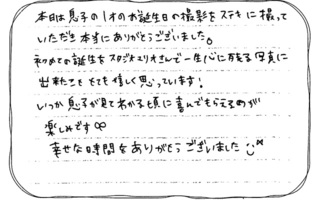 本日は息子の1才のお誕生日の撮影をステキに撮って
いただき本当にありがとうございました。
初めての誕生をスタジオエリオさんで一生心に残る写真に
出来たことをとても嬉しく思っています!
いつか息子が見てわかる頃に喜んでもらえるのが
楽しみです
幸せな時間をありがとうございました